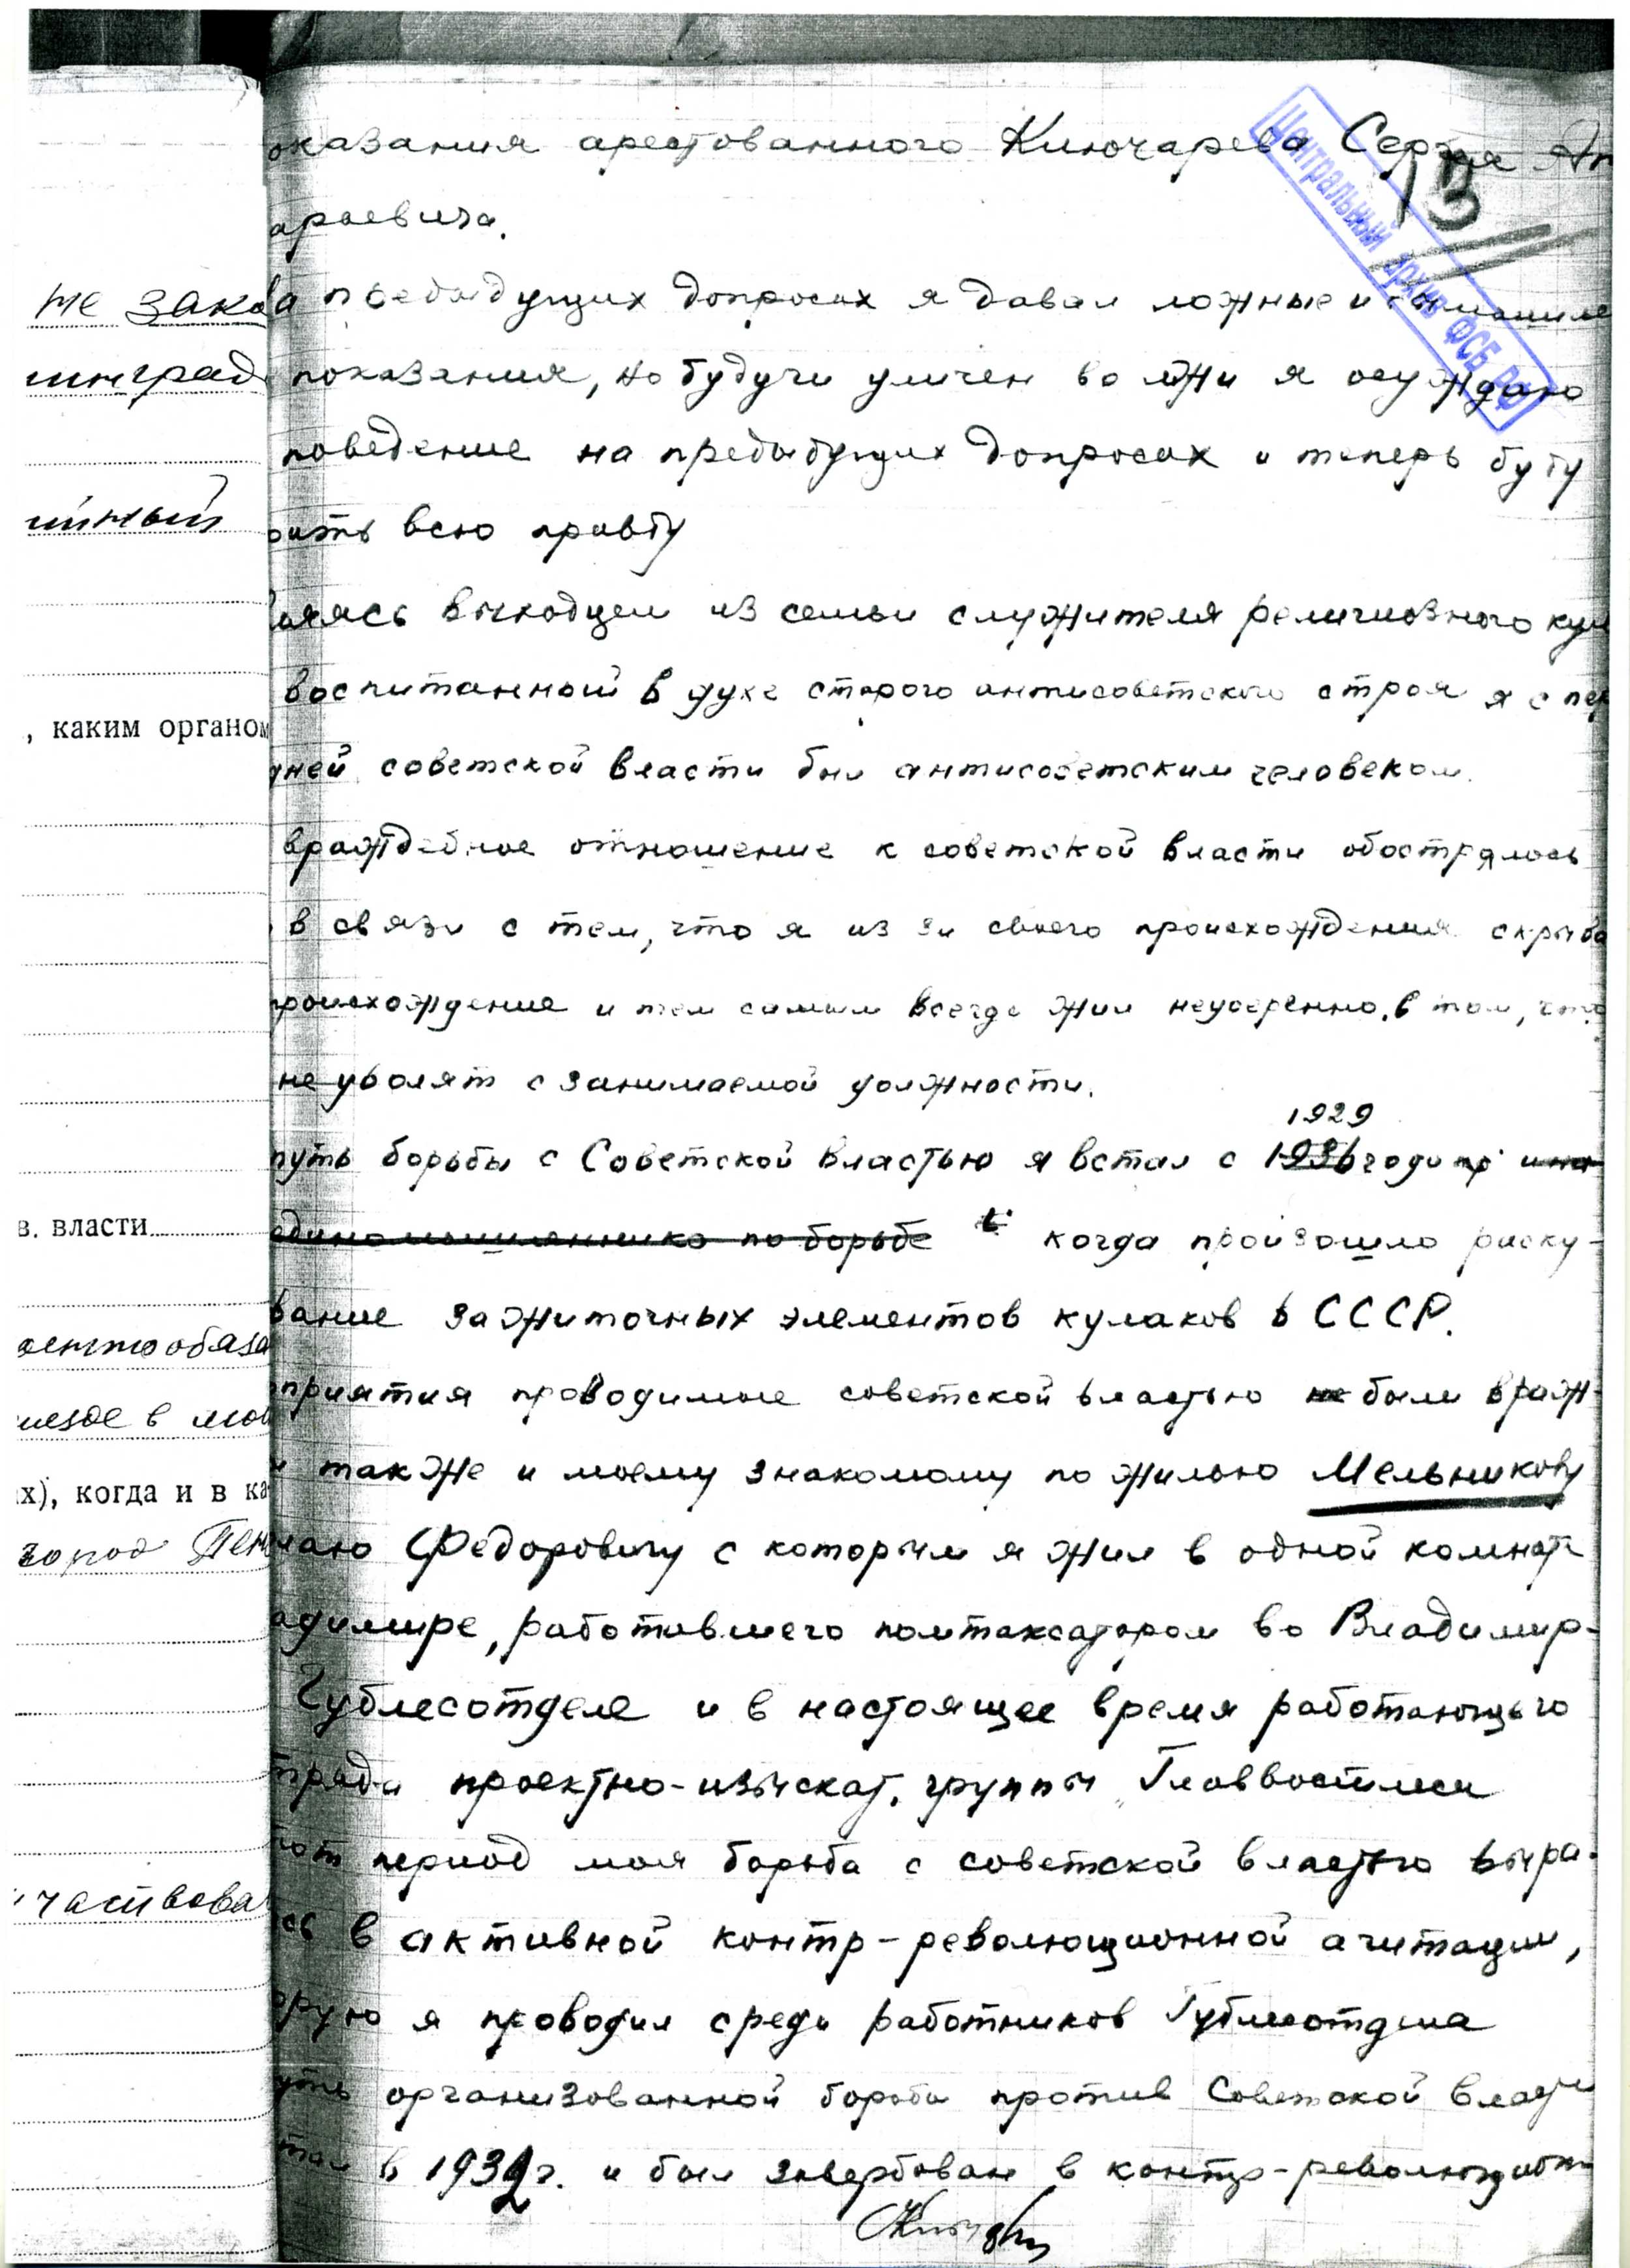 оказания арестованного Ключарева Сергея Ап
арьевича.
13
Центральный архив ФСБ РФ
а предыдущих допросах я давал ложные и
показания, но будучи уличен во лжи я осуждаю
поведение на предыдущих допросах и теперь буду
рить всю правду
ляясь выходцем из семьи служителя религиозного кул
воспитанный в духе старого антисоветского строя я с пер
дней советской власти был антисоветским человеком.
враждебное отношение к советской власти обострялось
в связи с тем, что я из за своего происхождения скрыва
происхождение и тем самым всегда жил неуверенно, в том, что
не уволят с занимаемой должности.
1929
путь борьбы с Советской властью я встал с 1936 года
единомышленника по борьбе когда произошло раску-
вание зажиточных элементов кулаков в СССР.
приятия проводимые советской властью не были враж-
и также и моему знакомому по жилью Мельникову
лаю Федоровичу с которым я жил в одной комнате
адимире, работавшего помтаксатором во Владимир-
Гублесотделе и в настоящее время работающего
тряда проектно-изыскат. группы Главвостлеса
тот период моя борьба с советской властью выра-
сь в активной контр-революционной агитации,
орую я проводил среди работников Гублесотдела
уть организованной борьбы против Советской власти
тал в 1932 г. и был завербован в контр-революцион
не зако
инград
, каким органом
в. власти
х), когда и в ка
город Лен
частвова